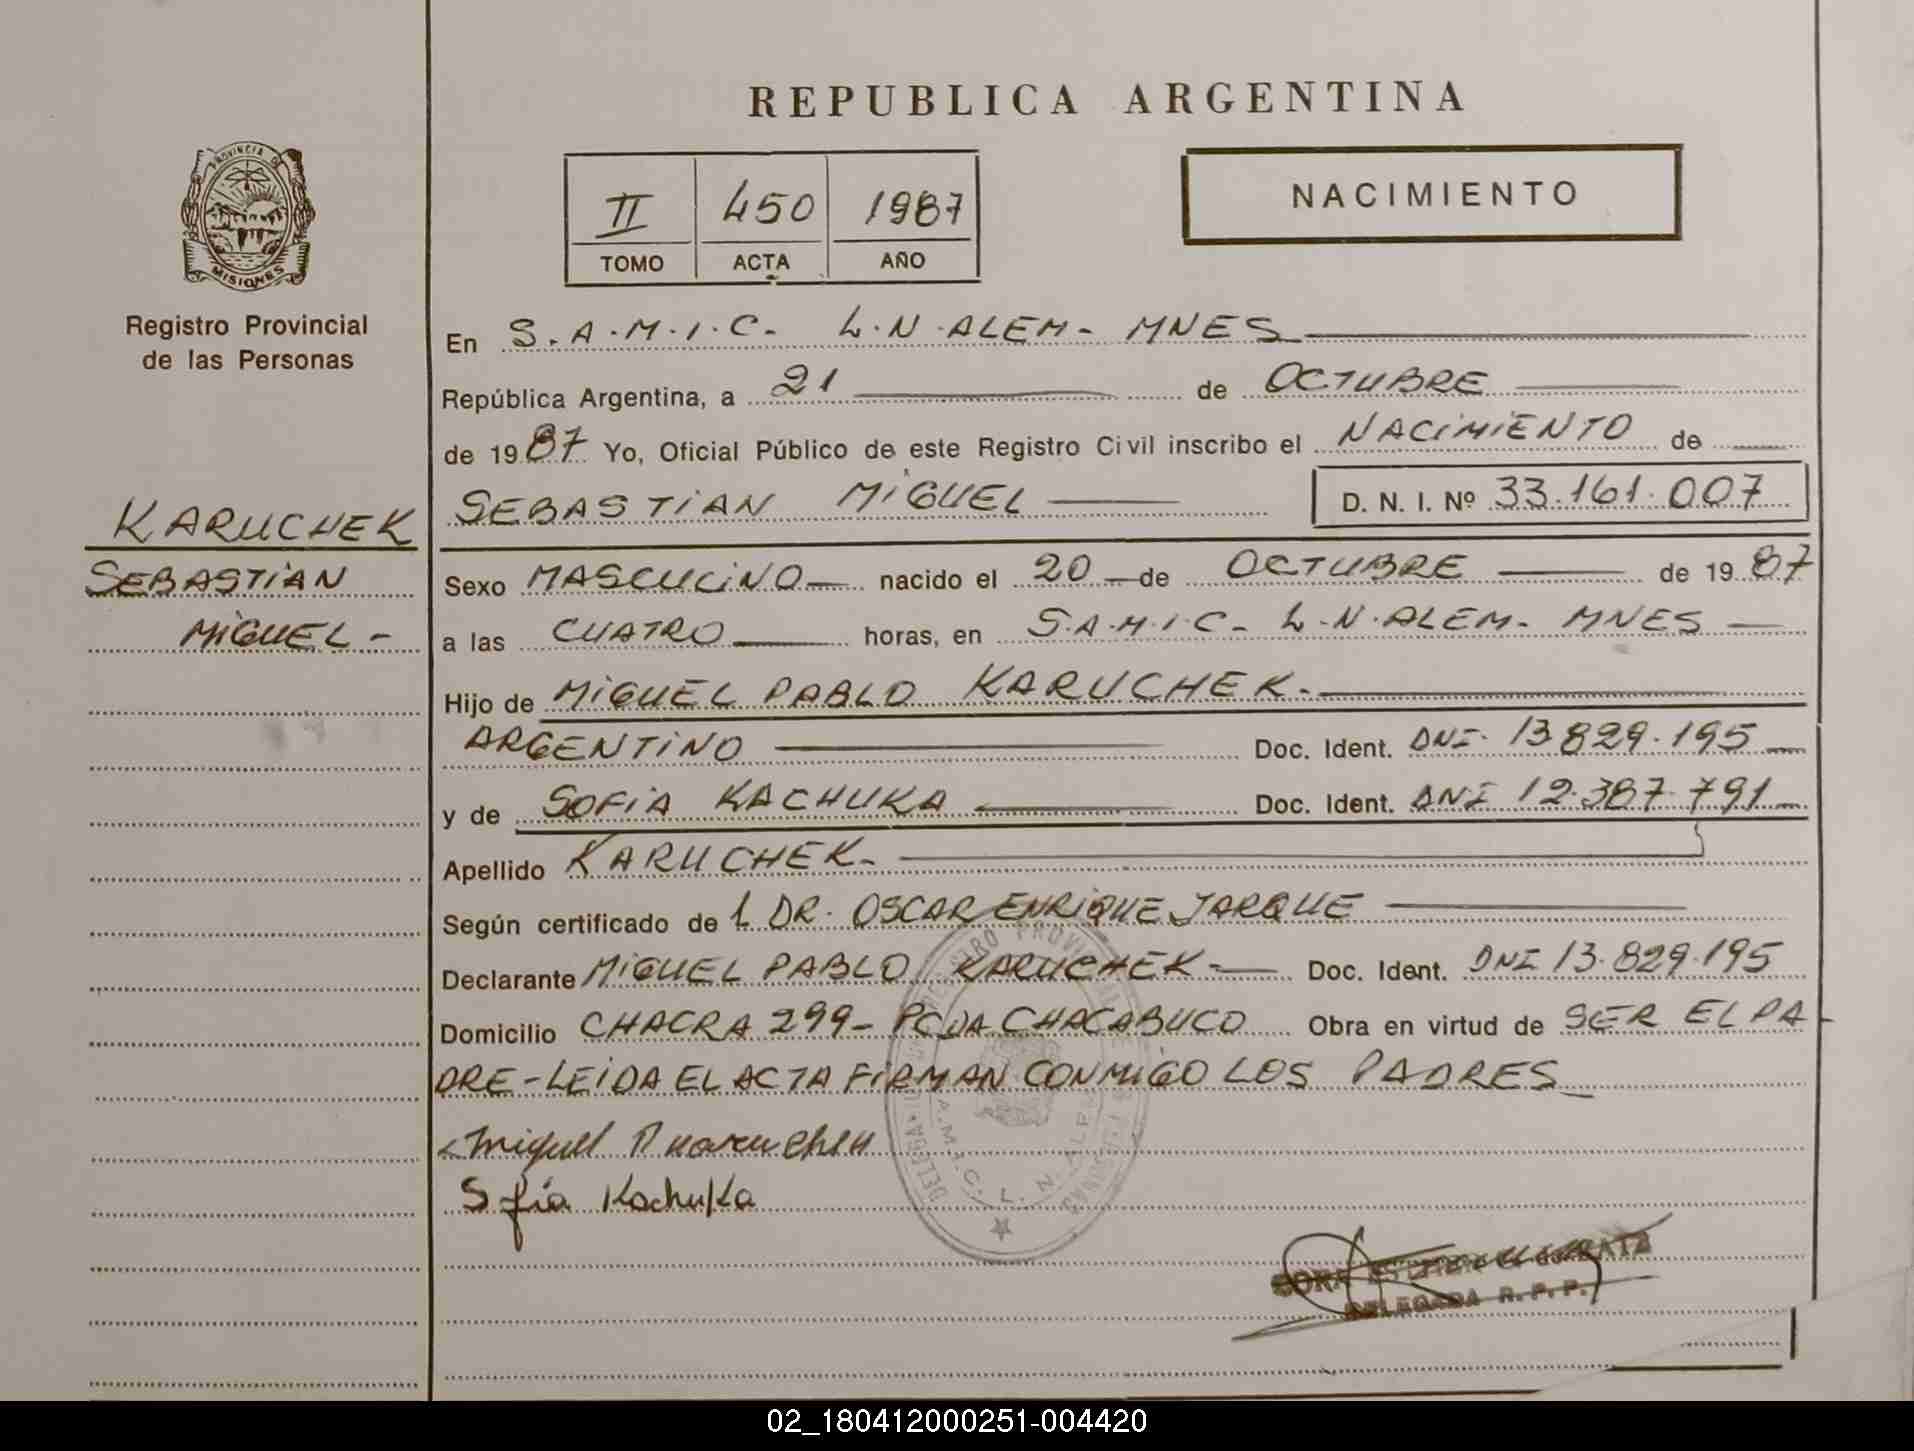 REPUBLICA ARGENTINA
PROVINCIA DE
MISIONES
Registro Provincial
de las Personas
II 450 1987
TOMO ACTA AÑO
NACIMIENTO
En S.A.M.I.C. L.N.ALEM- MNES
República Argentina, a 21 de OCTUBRE
de 1987 Yo, Oficial Público de este Registro Civil inscribo el NACIMIENTO de
SEBASTIAN MIGUEL D. N. I. Nº 33.161.007
KARUCHEK
SEBASTIAN
MIGUEL-
Sexo MASCULINO nacido el 20 de OCTUBRE de 1987
a las CUATRO horas, en S.A.M.I.C- L.N.ALEM- MNES
Hijo de MIGUEL PABLO KARUCHEK.
ARGENTINO Doc. Ident. DNI 13829.195
y de SOFIA KACHUKA Doc. Ident. DNI 12.387.791
Apellido KARUCHEK-
Según certificado de l DR. OSCAR ENRIQUE JARQUE
Declarante MIGUEL PABLO KARUCHEK- Doc. Ident. DNI 13.829.195
Domicilio CHACRA 299- PCDA CHACABUCO Obra en virtud de SER EL PA-
DRE-LEIDA EL ACTA FIRMAN CONMIGO LOS PADRES
Miguel P Karuchek
Sofia Kachuka
REGISTRO PROVINCIAL DE LAS PERSONAS
DELEGACION
S.A.M.I.C. L. N. ALEM
DELEGADA R. P. P.
02_180412000251-004420